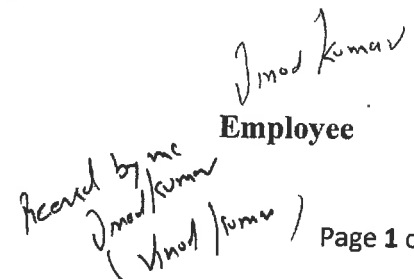 Vinod Kumar
Employee
Received by me
Vinod Kumar
(Vinod Kumar)
Page 1 o